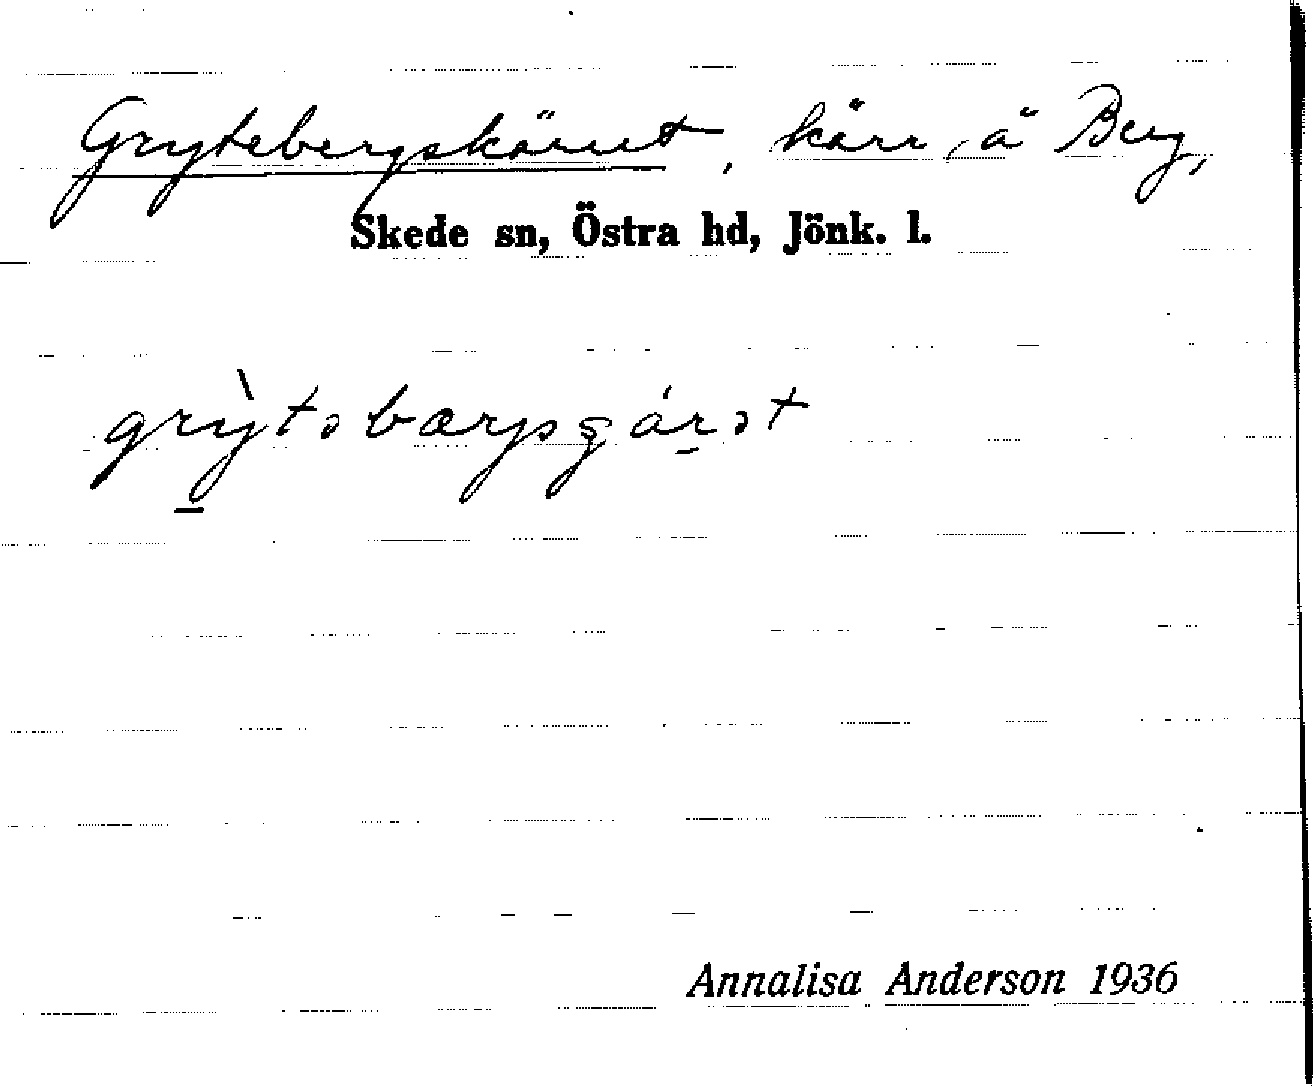 Grytebergskärret, kärr, å Berg,
Skede sn, Östra hd, Jönk. l.
grỳtəbærgsçárət
Annalisa Anderson 1936